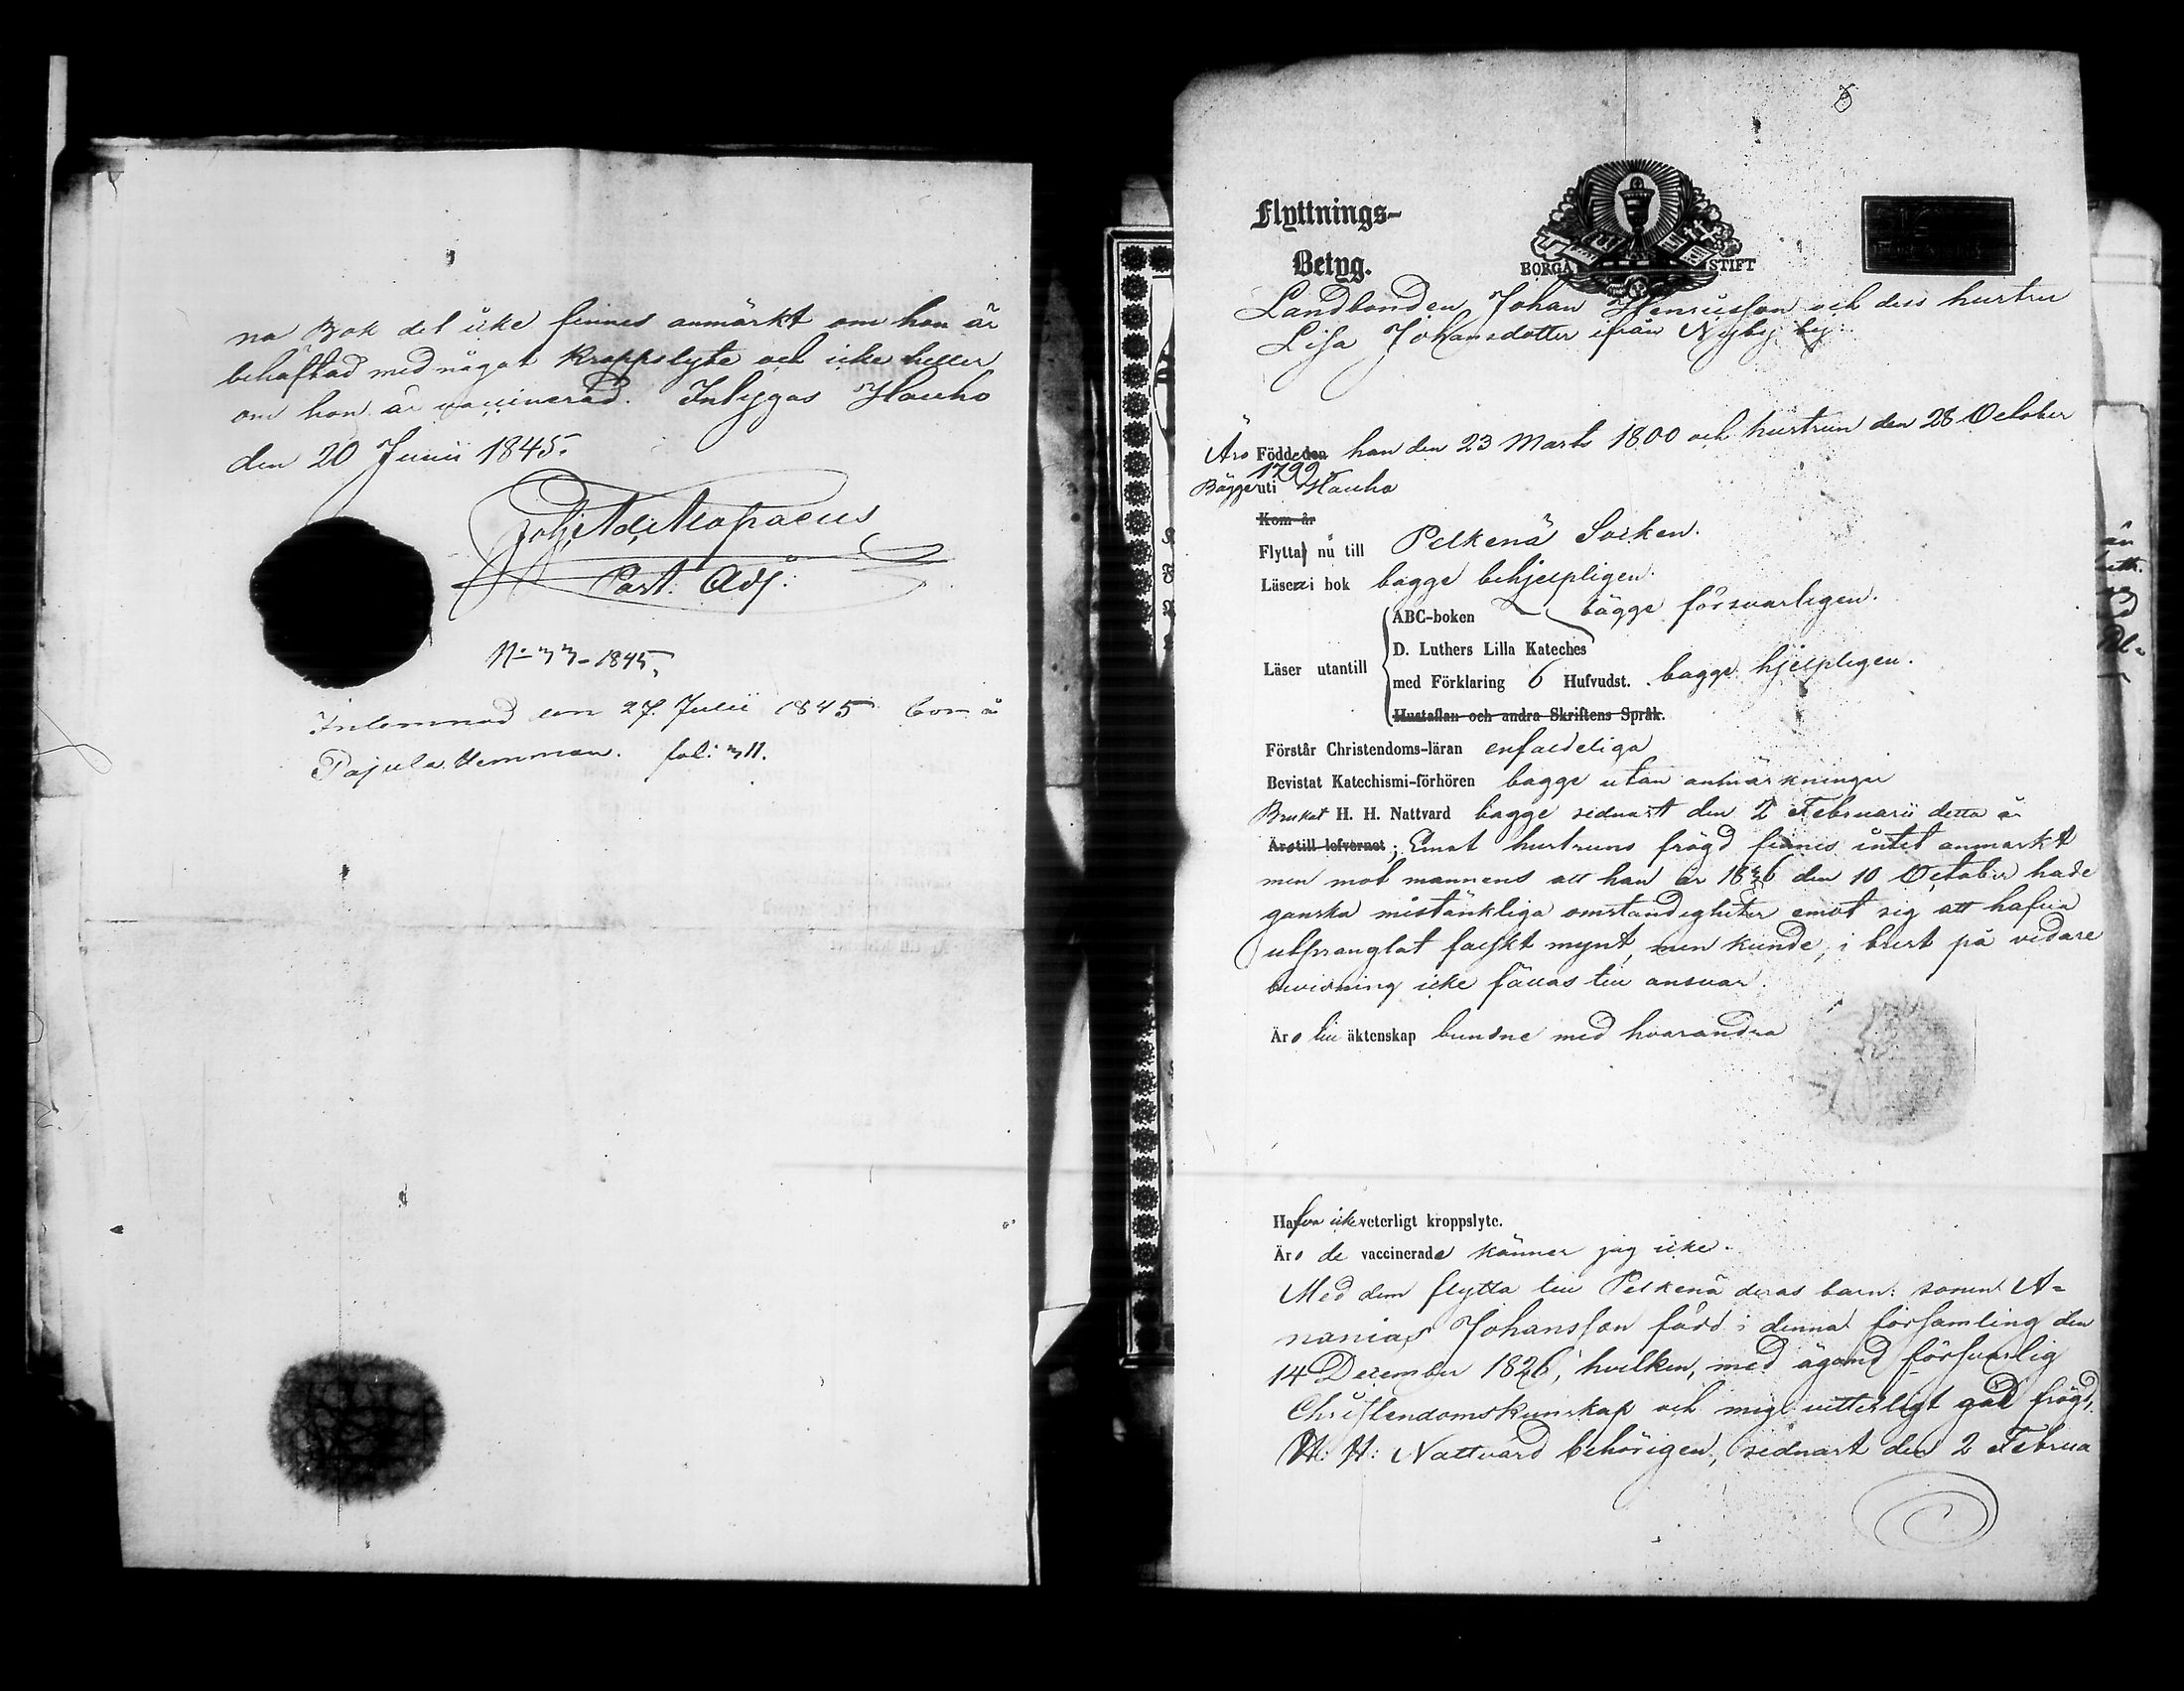 na Bok det icke finnes anmärkt om han är
behäftad med något kroppslyte och icke heller
om han är vaccinerad. Intygas Hauho
den 20 Junii 1845.
Past. Adj.
1845,
Inlemnad den 27 Julii 1845
Pajula Hemman. fol:
Flyttnings-
Betyg.
BORGÅ STIFT
Landbonden Johan Henricsson och dess hustru
Lisa Johansdotter ifrån Nyby by
Äro Födde den han den 23 Marts 1800 och hustrun den 28 October
1799
Bägge uti Hauho
Kom år
Flytta nu till Pelkenä Socken.
Läsa i bok bagge behjelpligen.
ABC-boken bägge försvarligen.
D. Luthers Lilla Kateches
Läser utantill
med Förklaring 6 Hufvudst. bagge hjelpligen.
Hustaflan och andra Skriftens Språk.
Förstår Christendoms-läran enfaldeliga
Bevistat Katechismi-förhören bagge utan anmärkningar
Brukat H. H. Nattvard bagge sednast den 2 Februarii detta år
Äro till lefvernet; Emot hustruns frägd finnes intet anmarkt
men mot mannens att han år 1836 den 10 October hade
ganska mistänkliga omständigheter emot sig att hafva
utpranglat falskt mynt, men kunde, i brist på vidare
bevisning icke fällas till ansvar.
Äro till äktenskap bundne med hvarandra
Hafva icke veterligt kroppslyte.
Äro de vaccinerade känner jag icke.
Med dem flytta till Pelkenä deras barn: sonen A=
nanias Johansson född i denna församling den
14 December 1826, hvilken, med ägand försvarlig
Christendomskunskap och mig vitterligt god frägd,
H: H: Nattvard behörigen, sednast den 2 Februa